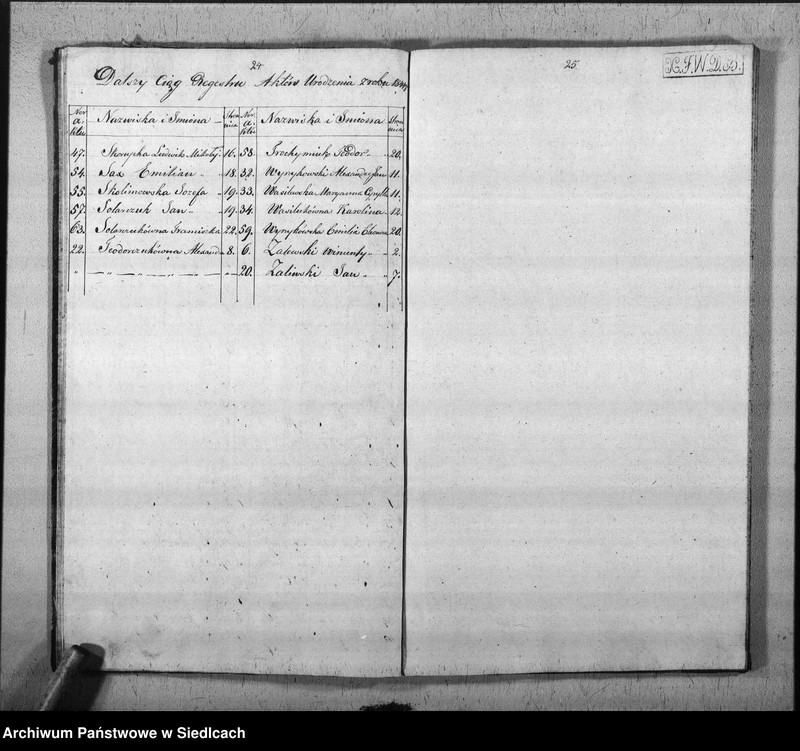 24
Dalszy Ciąg Regestru Aktów Urodzenia z roku
Nor aktu Nazwiska i Imiona Stronica Nor aktu Nazwiska i Imiona Stronica
47. Skorupka Ludwik 16. 58. Teodor 20.
54. Sax Emilian 18. 32. Wyrzykowski Alexander Jan 11.
55. Skolimowska Józefa 19. 33. Wasilewska Maryanna 11.
57. Solarczuk Jan 19. 34. Wasilukówna Karolina 12.
63. Solarczukówna Franciszka 22. 59. Wyrzykowska Emilia 20.
22. Teodorczukówna Alexand 8. 6. Zalewski Wincenty 2.
" — " — — — — " 20. Zaliwski Jan 7.
25
Archiwum Państwowe w Siedlcach